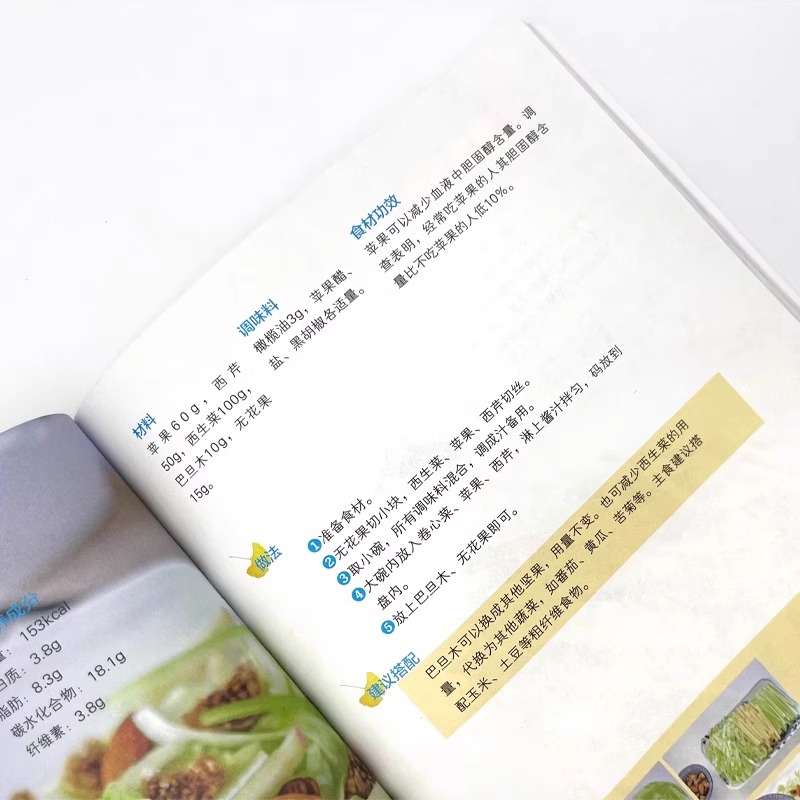 材料
苹果60g，西芹
50g，西生菜100g，
巴旦木10g，无花果
15g。
调味料
橄榄油3g，苹果醋、
盐、黑胡椒各适量。
食材功效
苹果可以减少血液中胆固醇含量。调
查表明，经常吃苹果的人其胆固醇含
量比不吃苹果的人低10%。
做法
1准备食材。
2无花果切小块，西生菜、苹果、西芹切丝。
3取小碗，所有调味料混合，调成汁备用。
4大碗内放入卷心菜、苹果、西芹，淋上酱汁拌匀，码放到
盘内。
5放上巴旦木、无花果即可。
建议搭配
巴旦木可以换成其他坚果，用量不变。也可减少西生菜的用
量，代换为其他蔬菜，如番茄、黄瓜、苦菊等。主食建议搭
配玉米、土豆等粗纤维食物。
成分
：153kcal
质：3.8g
脂肪：8.3g
碳水化合物：18.1g
纤维素：3.8g